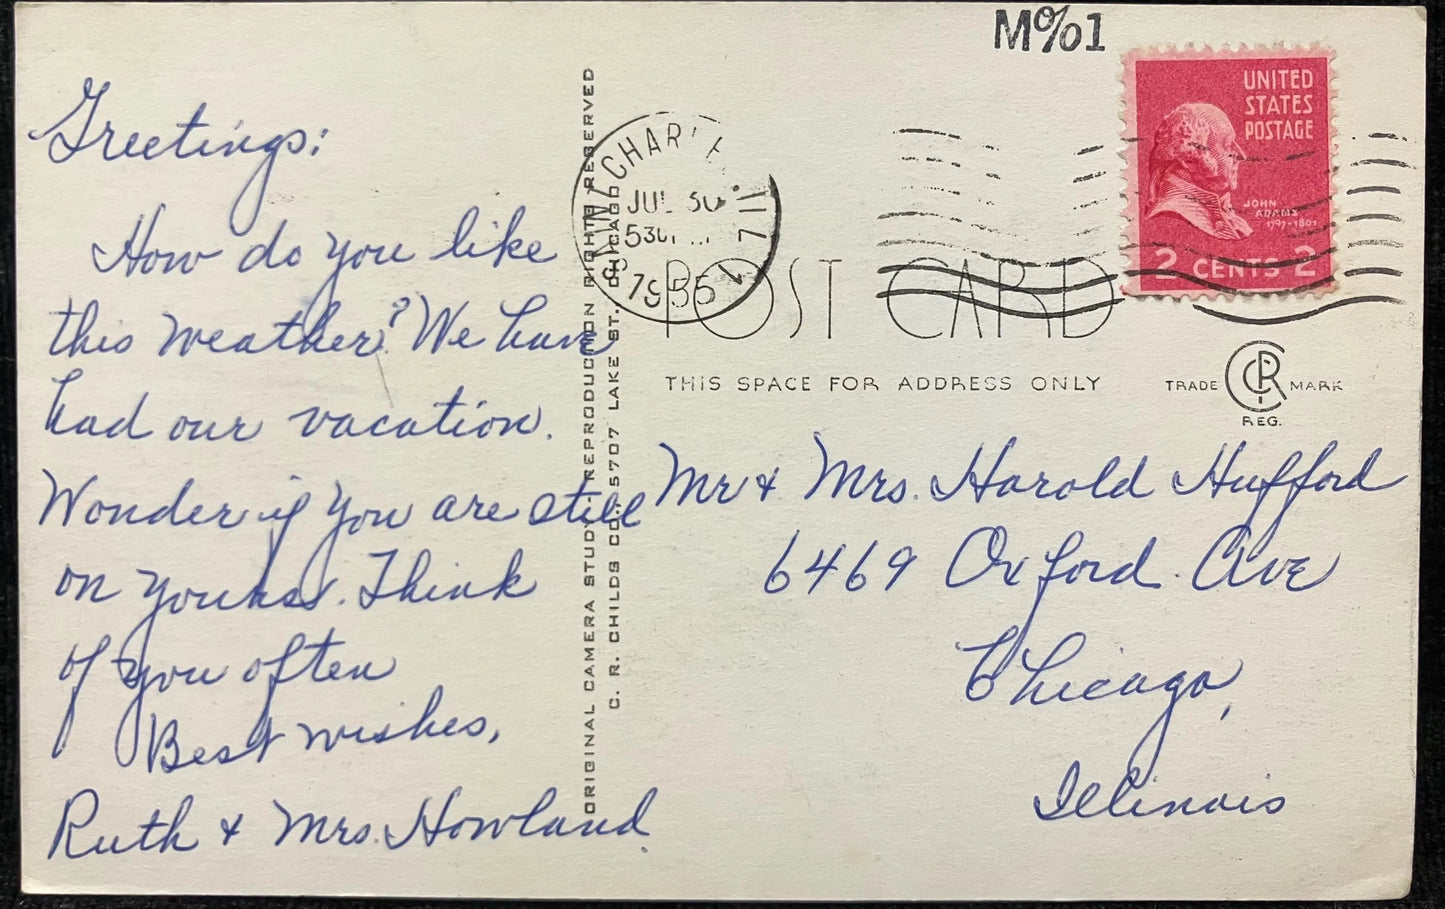 Greetings:
How do you like
this weather? We have
had our vacation.
Wonder if you are still
on yours. Think
of you often
Best wishes,
Ruth & Mrs. Howland.
ORIGINAL CAMERA STUDY REPRODUCTION RIGHTS RESERVED
C. R. CHILDS CO. 5707 LAKE ST. CHICAGO
M%1
JUL 30
1955
UNITED
STATES
POSTAGE
JOHN
ADAMS
1797-1801
2 CENTS 2
POST CARD
THIS SPACE FOR ADDRESS ONLY
TRADE CRC MARK
REG.
Mr & Mrs. Harold Hufford
6469 Oxford Ave
Chicago,
Illinois